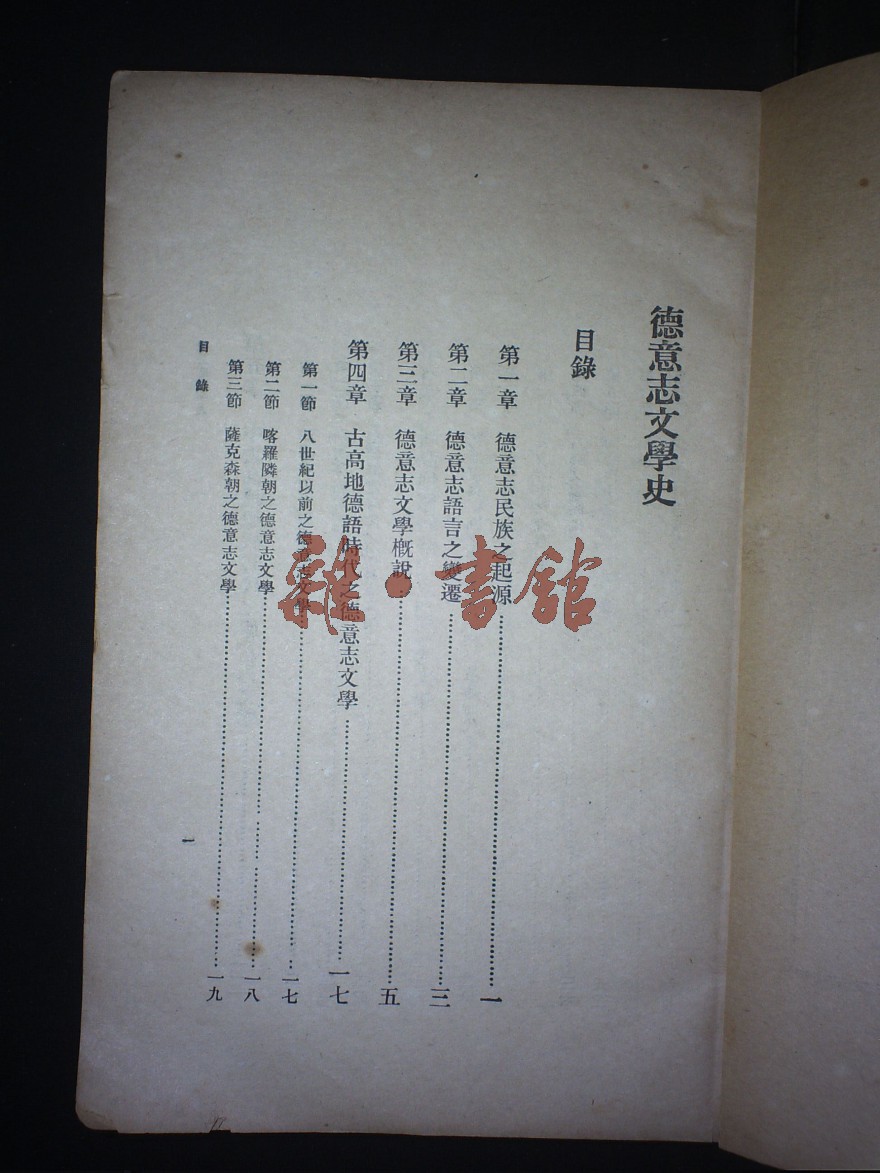 德意志文學史
目錄
第一章 德意志民族之起源……一
第二章 德意志語言之變遷……三
第三章 德意志文學概說……五
第四章 古高地德語時代之德意志文學……一七
第一節 八世紀以前之德意志文學……一七
第二節 喀羅隣朝之德意志文學……一八
第三節 薩克森朝之德意志文學……一九
目錄
一
雜·書館